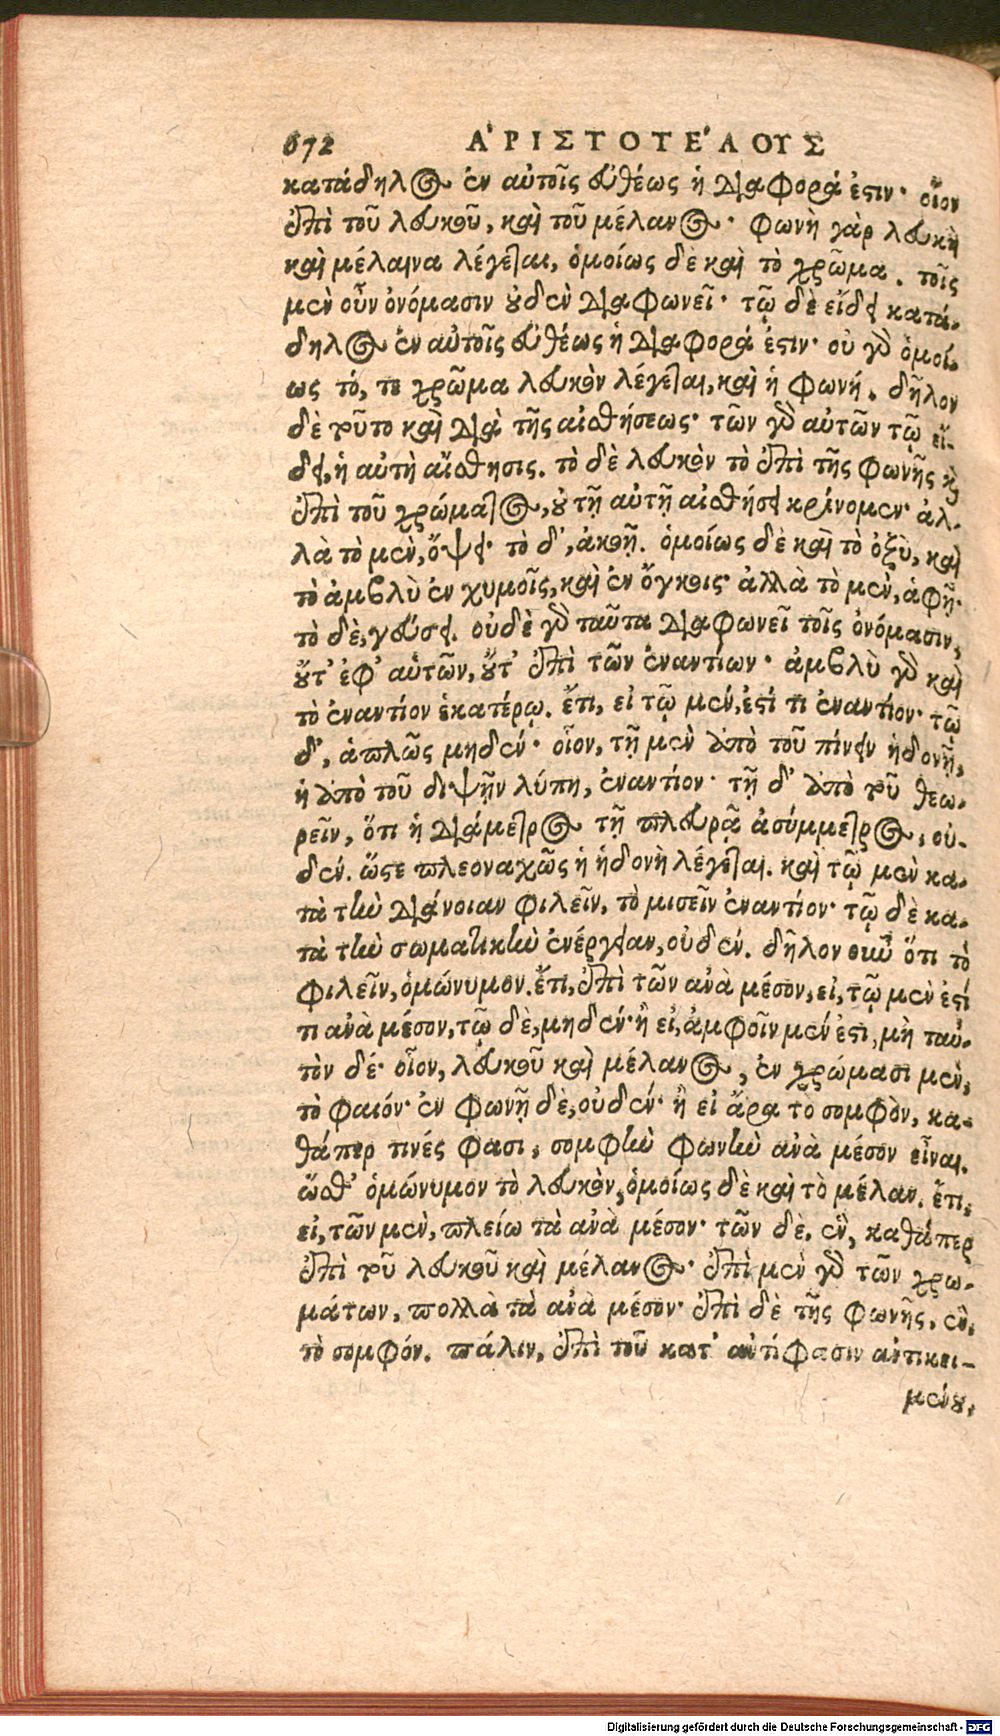 672 ἈΡΙΣΤΟΤΕ'ΛΟΥΣ
κατάδηλος ἐν αὐτοῖς εὐθέως ἡ διαφορά ἐστιν· οἷον
ἐπὶ τοῦ λευκοῦ, καὶ τοῦ μέλανος· φωνὴ γὰρ λευκὴ
καὶ μέλαινα λέγεται, ὁμοίως δὲ καὶ τὸ χρῶμα. τοῖς
μὲν οὖν ὀνόμασιν οὐδὲν διαφωνεῖ· τῷ δὲ εἴδει κατά-
δηλος ἐν αὐτοῖς εὐθέως ἡ διαφορά ἐστιν· οὐ γὰρ ὁμοί-
ως τό, τε χρῶμα λευκὸν λέγεται, καὶ ἡ φωνή. δῆλον
δὲ τοῦτο καὶ διὰ τῆς αἰσθήσεως· τῶν γὰρ αὐτῶν τῷ εἴ-
δει, ἡ αὐτὴ αἴσθησις. τὸ δὲ λευκὸν τὸ ἐπὶ τῆς φωνῆς καὶ
ἐπὶ τοῦ χρώματος, οὐ τῇ αὐτῇ αἰσθήσει κρίνομεν· ἀλ-
λὰ τὸ μὲν, ὄψει· τὸ δ', ἀκοῇ. ὁμοίως δὲ καὶ τὸ ὀξὺ, καὶ
τὸ ἀμβλὺ ἐν χυμοῖς, καὶ ἐν ὄγκοις· ἀλλὰ τὸ μὲν, ἁφῇ·
τὸ δὲ, γεύσει. οὐδὲ γὰρ ταῦτα διαφωνεῖ τοῖς ὀνόμασιν,
οὔτ' ἐφ' αὑτῶν, οὔτ' ἐπὶ τῶν ἐναντίων· ἀμβλὺ γὰρ καὶ
τὸ ἐναντίον ἑκατέρῳ. ἔτι, εἰ τῷ μέν, ἐστί τι ἐναντίον· τῷ
δ', ἁπλῶς μηδέν· οἷον, τῇ μὲν ἀπὸ τοῦ πίνειν ἡδονῇ,
ἡ ἀπὸ τοῦ διψῆν λύπη, ἐναντίον· τῇ δ' ἀπὸ τοῦ θεω-
ρεῖν, ὅτι ἡ διάμετρος τῇ πλευρᾷ ἀσύμμετρος, οὐ-
δέν. ὥστε πλεοναχῶς ἡ ἡδονὴ λέγεται. καὶ τῷ μὲν κα-
τὰ τὴν διάνοιαν φιλεῖν, τὸ μισεῖν ἐναντίον· τῷ δὲ κα-
τὰ τὴν σωματικὴν ἐνέργειαν, οὐδέν. δῆλον οὖν ὅτι τὸ
φιλεῖν, ὁμώνυμον. ἔτι, ἐπὶ τῶν ἀνὰ μέσον, εἰ, τῷ μὲν ἐστί
τι ἀνὰ μέσον, τῷ δὲ, μηδέν· ἢ εἰ, ἀμφοῖν μέν ἐστι, μὴ ταὐ-
τὸν δέ· οἷον, λευκοῦ καὶ μέλανος, ἐν χρώμασι μὲν,
τὸ φαιόν· ἐν φωνῇ δὲ, οὐδέν· ἢ εἰ ἄρα τὸ σομφὸν, κα-
θάπερ τινές φασι, σομφὴν φωνὴν ἀνὰ μέσον εἶναι.
ὥσθ' ὁμώνυμον τὸ λευκὸν, ὁμοίως δὲ καὶ τὸ μέλαν. ἔτι,
εἰ, τῶν μὲν, πλείω τὰ ἀνὰ μέσον· τῶν δὲ, ἓν, καθάπερ
ἐπὶ τοῦ λευκοῦ καὶ μέλανος· ἐπὶ μὲν γὰρ τῶν χρω-
μάτων, πολλὰ τὰ ἀνὰ μέσον· ἐπὶ δὲ τῆς φωνῆς, ἓν,
τὸ σομφόν. πάλιν, ἐπὶ τοῦ κατ' ἀντίφασιν ἀντικει-
μένου,
Digitalisierung gefördert durch die Deutsche Forschungsgemeinschaft - DFG